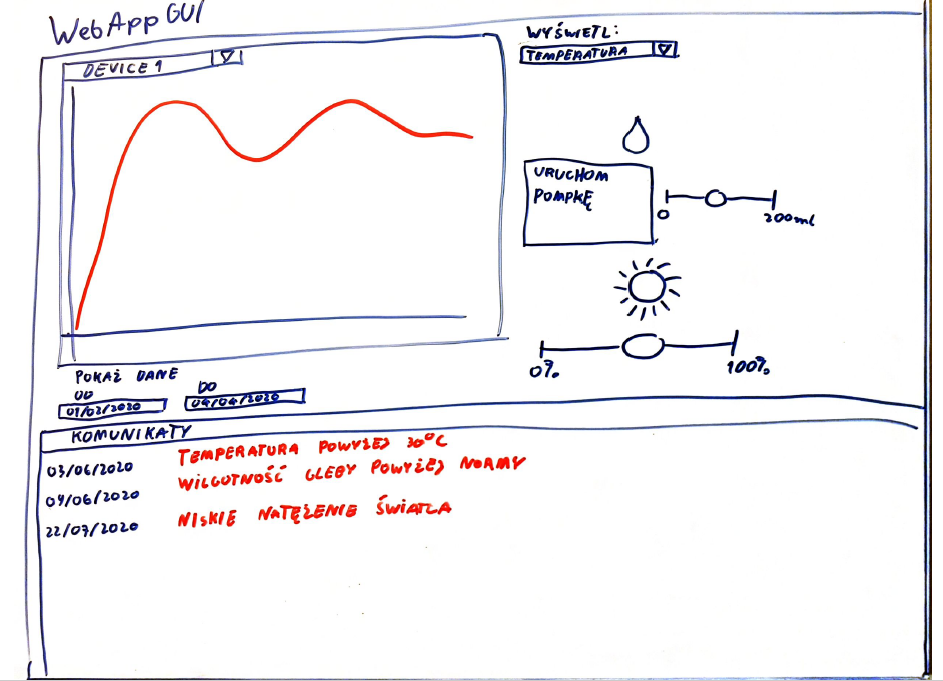 WebApp GUI
DEVICE 1
WYŚWIETL:
TEMPERATURA
URUCHOM
POMPKĘ
0
200ml
0%
100%
POKAŻ DANE
OD
DO
01/02/2020
04/04/2020
KOMUNIKATY
03/06/2020 TEMPERATURA POWYŻEJ 30°C
04/06/2020 WILGOTNOŚĆ GLEBY POWYŻEJ NORMY
22/07/2020 NISKIE NATĘŻENIE ŚWIATŁA